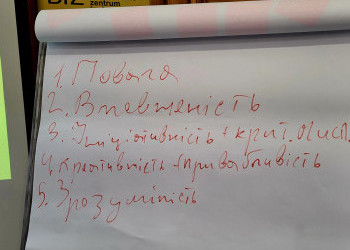 BIZ
zentrum.
1. Повага
2. Впевненість
3. Ініціативність + крит. мисл.
4. Креативність + привабливість
5. Зрозумілість